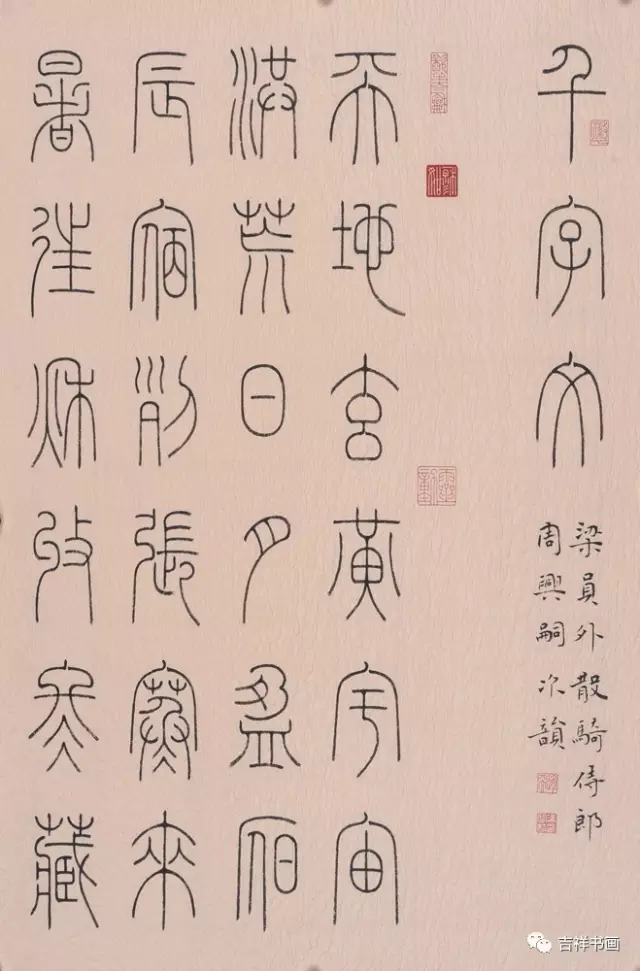 千字文
梁員外散騎侍郎
周興嗣次韻
天地玄黃宇宙
洪荒日月盈昃
辰宿列張寒來
暑往秋收冬藏
吉祥书画